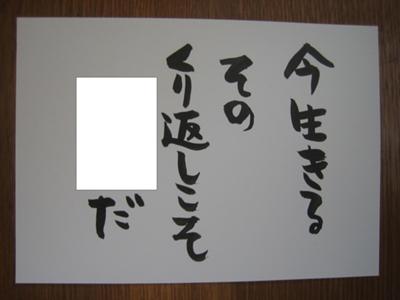 今生きる
その
くり返しこそ
だ